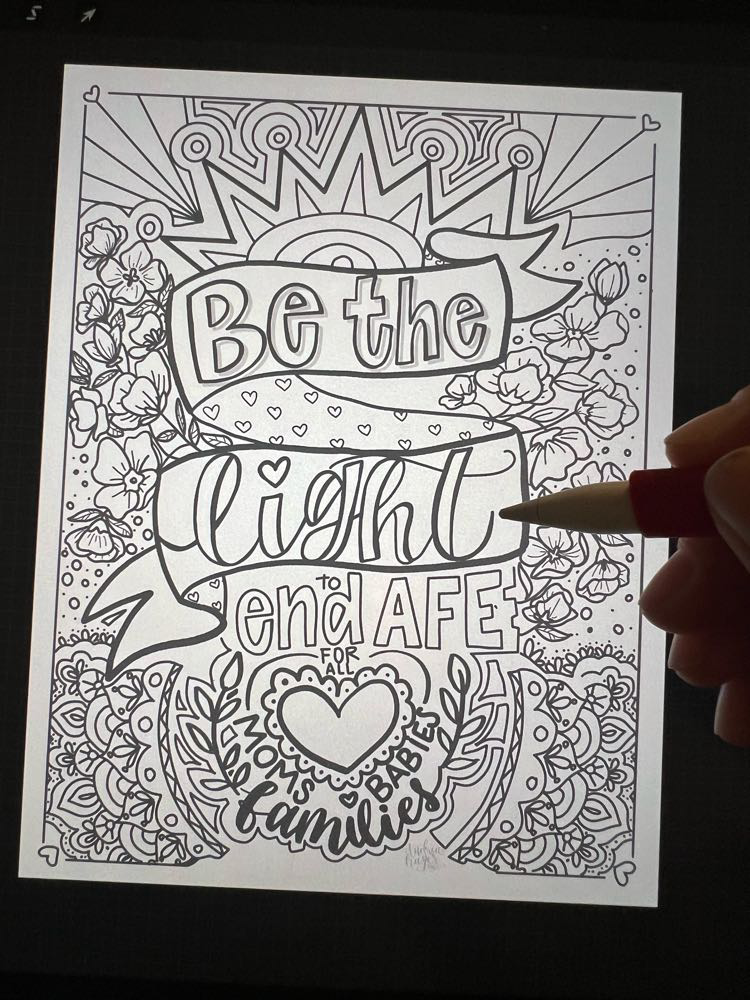 Be the
light
to
end AFE
FOR
ALL
MOMS BABIES
families